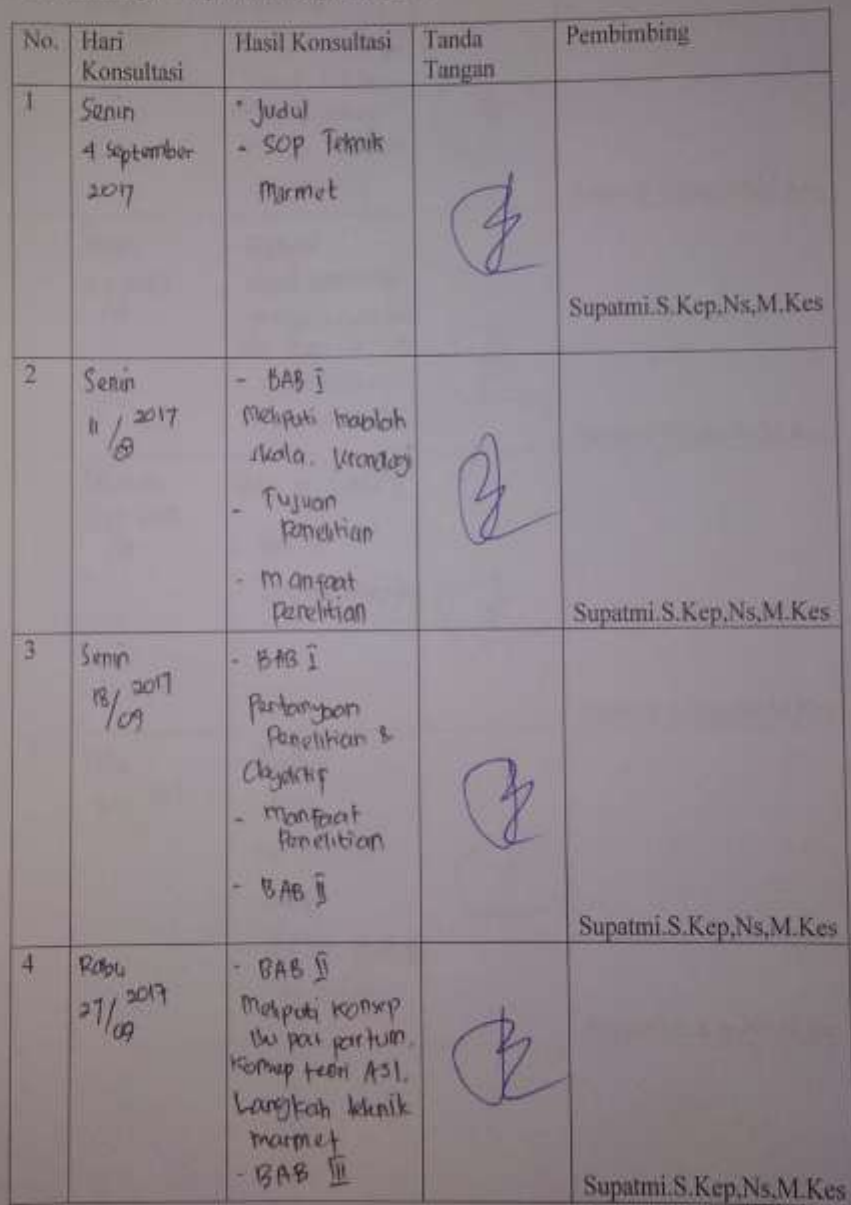 No. Hari Konsultasi Hasil Konsultasi Tanda Tangan Pembimbing
1
Senin
4 September
2017
Judul
- SOP Teknik
Marmet
Supatmi.S.Kep,Ns,M.Kes
2
Senin
11/ 2017
- BAB I
Meliputi
skala.
- Tujuan
Penelitian
- manfaat
Penelitian
Supatmi.S.Kep,Ns,M.Kes
3
Senin
18/09 2017
- BAB I
Pertanyaan
Penelitian &
- Manfaat
Penelitian
- BAB II
Supatmi.S.Kep,Ns,M.Kes
4
Rabu
27/09 2017
- BAB II
Meliputi konsep
Ibu partum,
Konsep teori ASI,
Langkah teknik
marmet
- BAB III
Supatmi.S.Kep,Ns,M.Kes